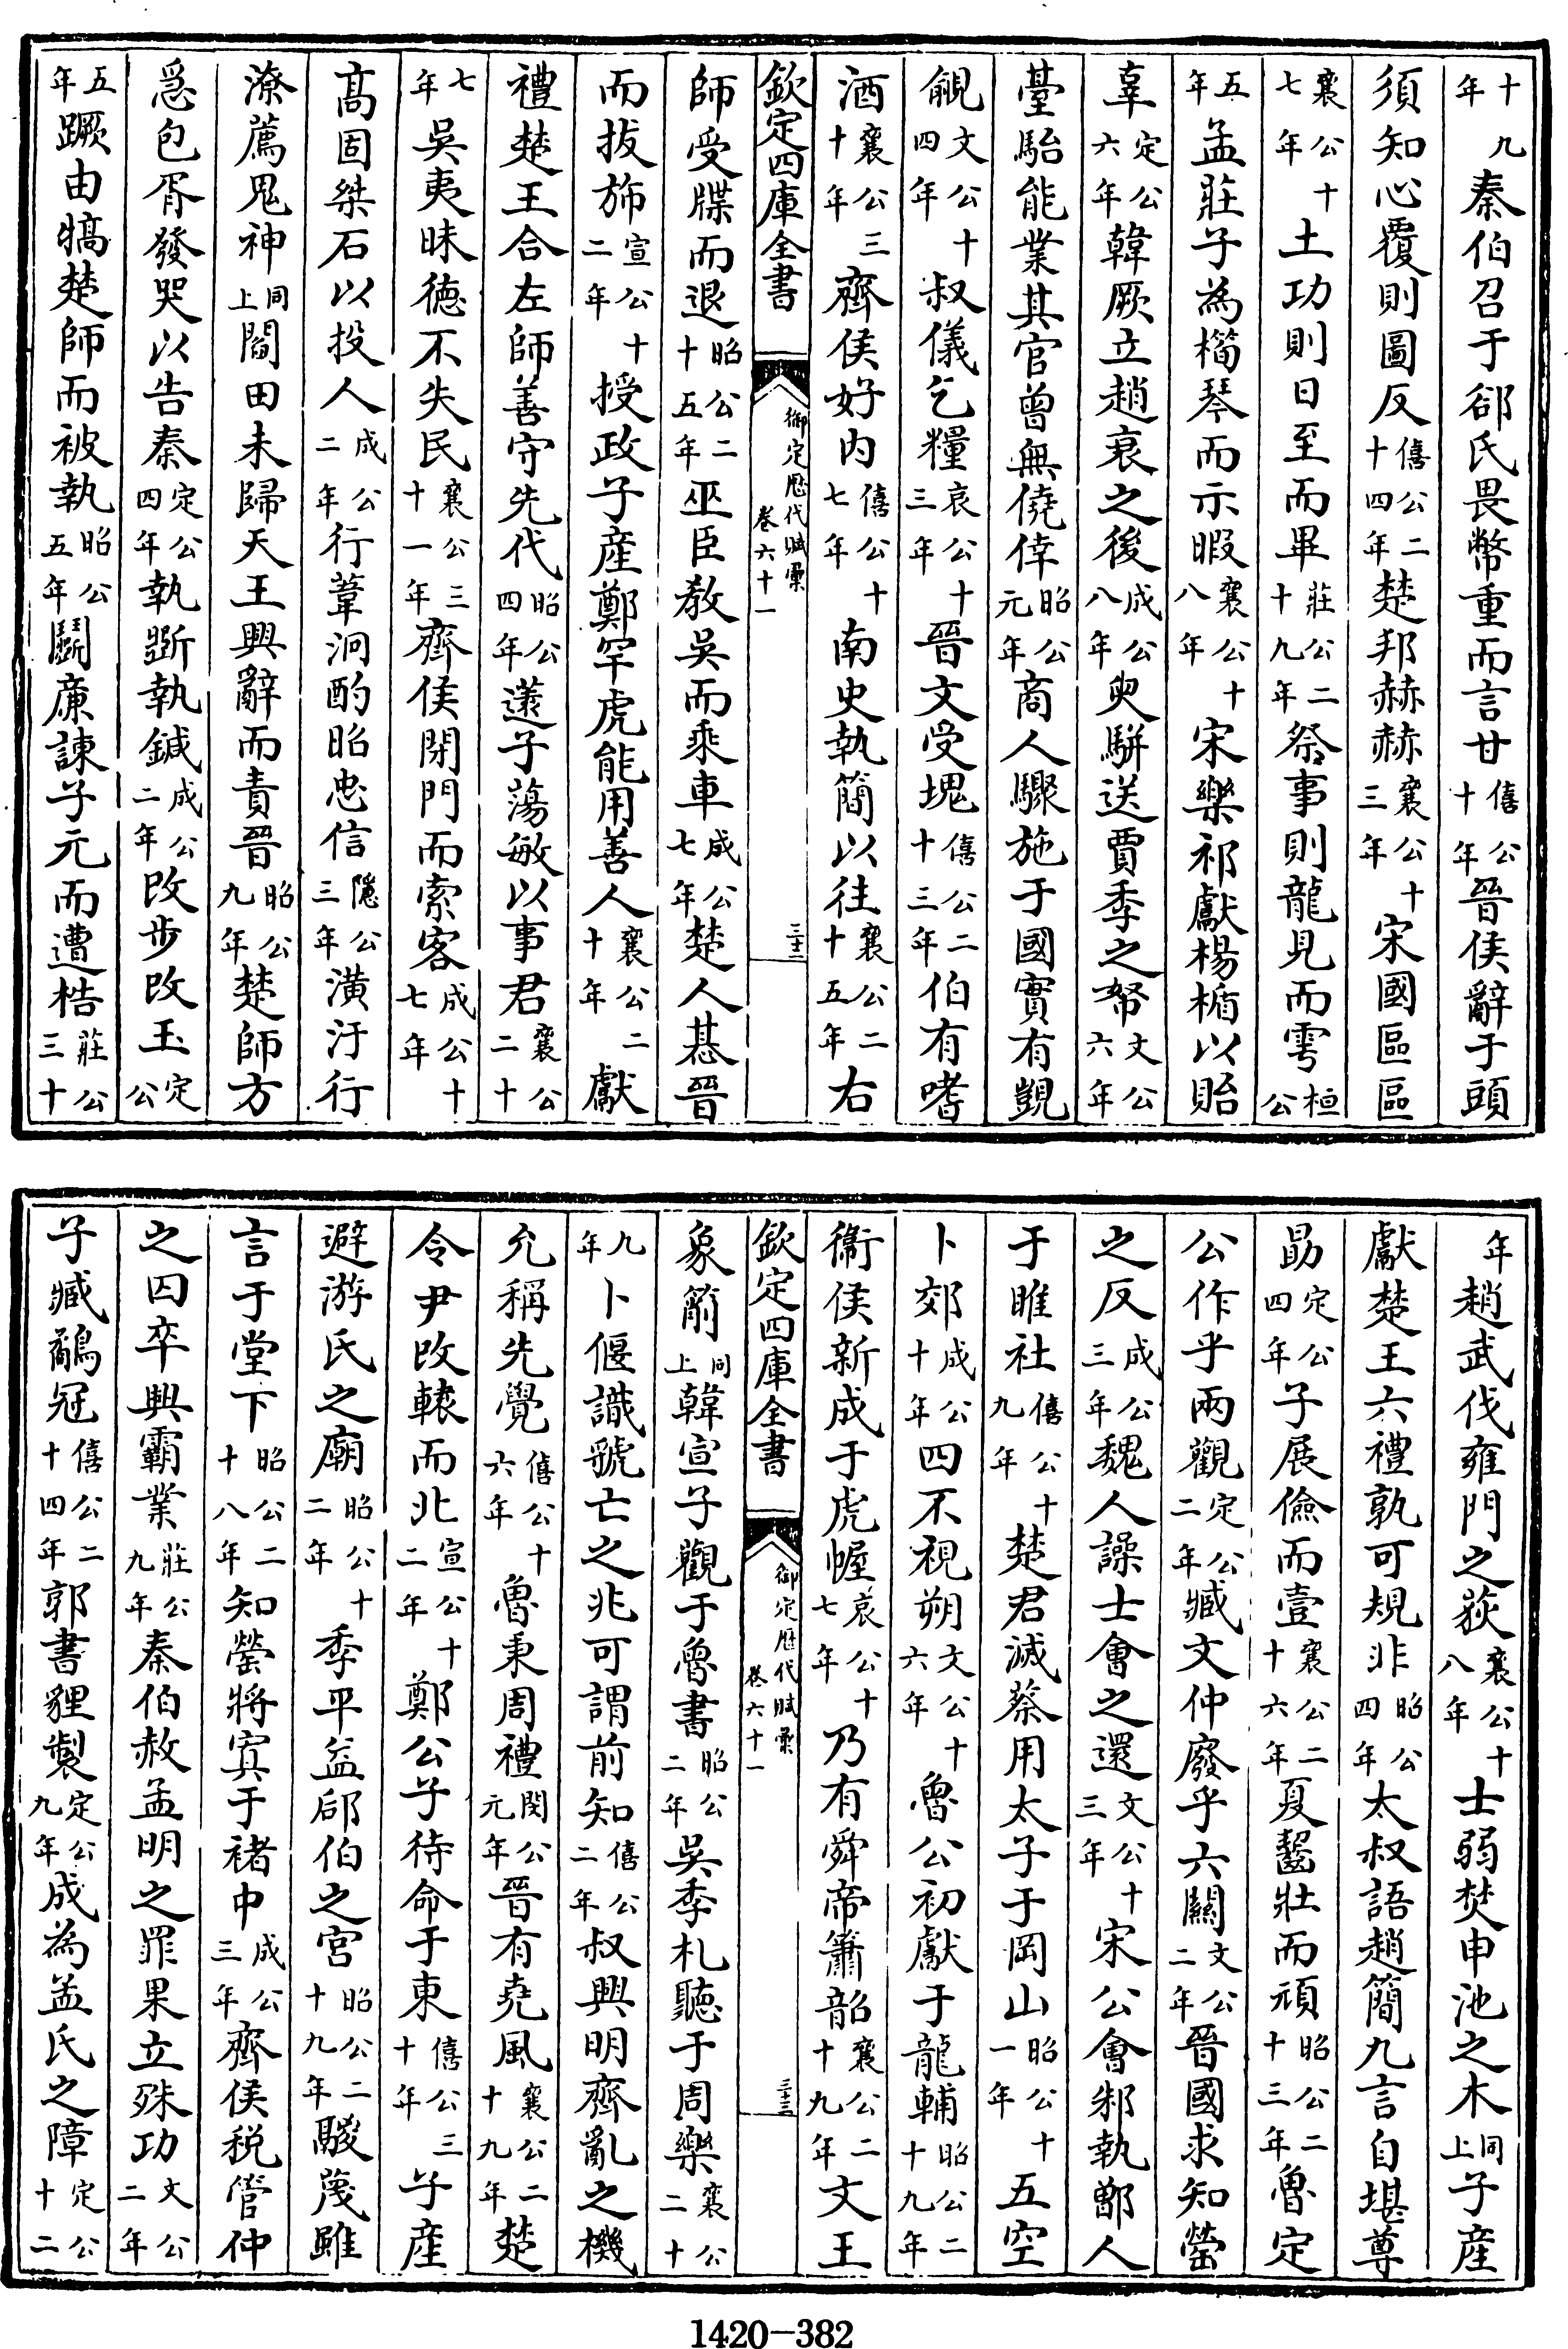 十九年秦伯召于郤氏畏幣重而言甘僖公十年晉侯辭于頭
須知心覆則圖反僖公二十四年楚邦赫赫襄公十三年宋國區區
襄公十七年土功則日至而畢莊公二十九年祭事則龍見而雩桓公
五年孟莊子為橁琴而示暇襄公十八年宋樂祁獻楊楯以貽
辜定公六年韓厥立趙衰之後成公八年臾駢送賈季之帑文公六年
臺駘能業其官曾無僥倖昭公元年商人驟施于國實有覬
覦文公十四年叔儀乞糧哀公十三年晉文受塊僖公二十三年伯有嗜
酒襄公三十年齊侯好内僖公十七年南史執簡以往襄公二十五年右
欽定四庫全書 御定歴代賦彙 卷六十一 三十二
師受牒而退昭公二十五年巫臣教吳而乘車成公七年楚人惎晉
而拔斾宣公十二年授政子產鄭罕虎能用善人襄公二十年獻
禮楚王合左師善守先代昭公四年薳子蕩敏以事君襄公二十
七年吳夷昧徳不失民襄公三十一年齊侯閉門而索客成公十七年
髙固桀石以投人成公二年行葦泂酌昭忠信隱公三年潢汙行
潦薦鬼神同上閻田未歸天王興辭而責晉昭公九年楚師方
急包胥發哭以告秦定公四年執斵執鍼成公二年改步改玉定公
五年蹶由犒楚師而被執昭公五年鬭亷諫子元而遭梏莊公三十
年趙武伐雍門之荻襄公十八年士弱焚申池之木同上子產
獻楚王六禮孰可規非昭公四年太叔語趙簡九言自堪尊
勗定公四年子展儉而壹襄公二十六年夏齧壯而頑昭公二十三年魯定
公作乎兩觀定公二年臧文仲廢乎六關文公二年晉國求知罃
之反成公三年魏人譟士會之還文公十三年宋公會邾執鄫人
于睢社僖公十九年楚君滅蔡用太子于岡山昭公十一年五空
卜郊成公十年四不視朔文公十六年魯公初獻于龍輔昭公二十九年
衞侯新成于虎幄哀公十七年乃有舜帝簫韶襄公二十九年文王
欽定四庫全書 御定歴代賦彙 卷六十一 三十三
象箾同上韓宣子觀于魯書昭公二年吳季札聽于周樂襄公二十
九年卜偃識虢亡之兆可謂前知僖公二年叔興明齊亂之機
允稱先覺僖公十六年魯秉周禮閔公元年晉有堯風襄公二十九年楚
令尹改轅而北宣公十二年鄭公子待命于東僖公三十年子產
避游氏之廟昭公十二年季平益郈伯之宮昭公二十九年鬷蔑雖
言于堂下昭公二十八年知罃將寘于褚中成公三年齊侯稅管仲
之囚卒興霸業莊公九年秦伯赦孟明之罪果立殊功文公二年
子臧鷸冠僖公二十四年郭書貍製定公九年成為孟氏之障定公十二
1420-382